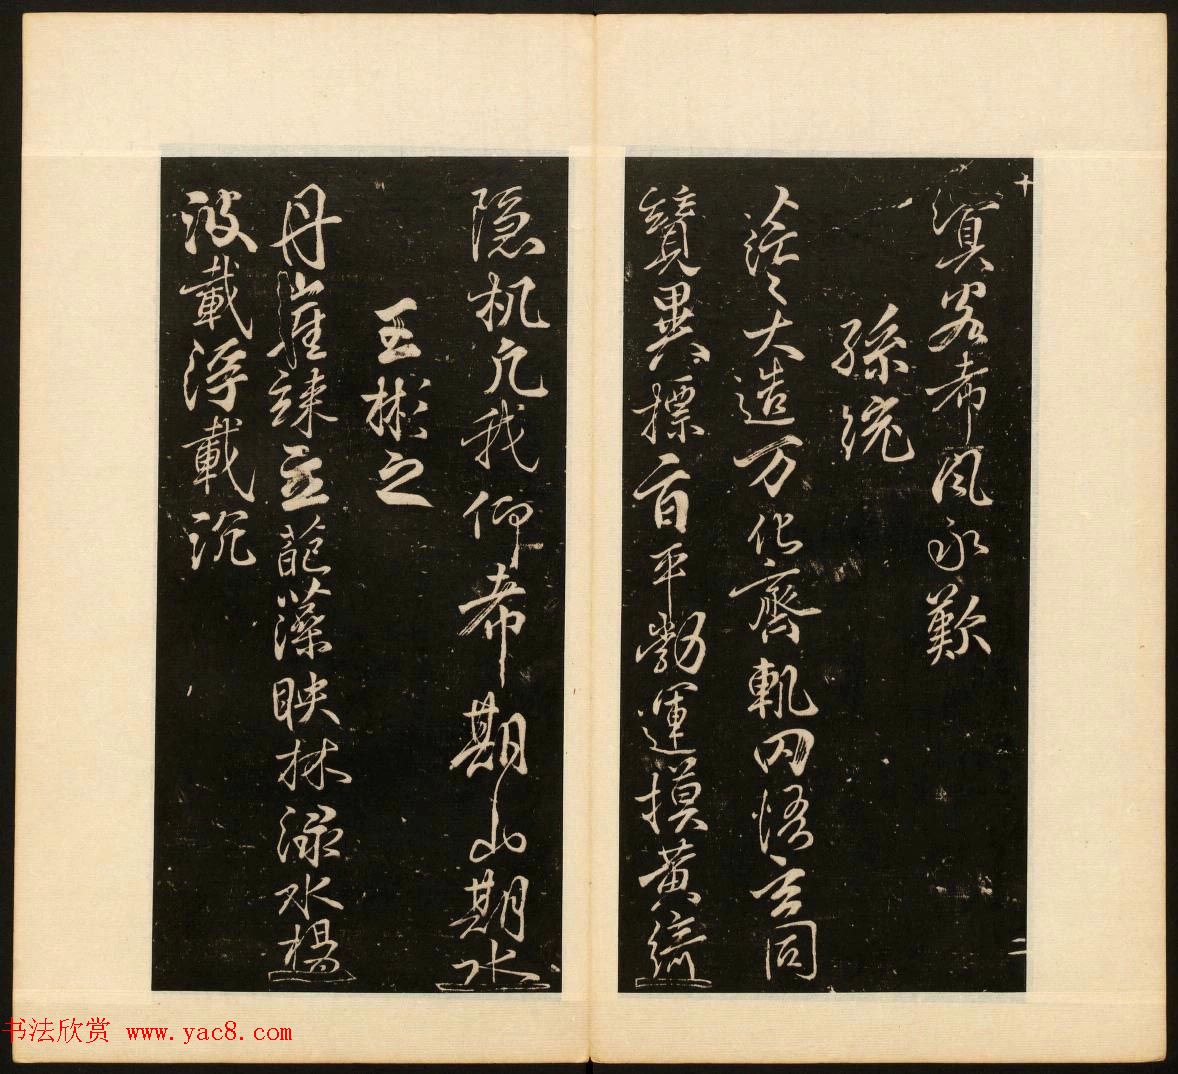 希風永歎
孫統
茫〻大造万化齊軌罔悟玄同
競異標旨平勃運摸黃綺
隱机凡我仰希期山期水
王彬之
丹崖竦立葩藻映林淥水揚
波載浮載沉
十
二
书法欣赏 www.yac8.com